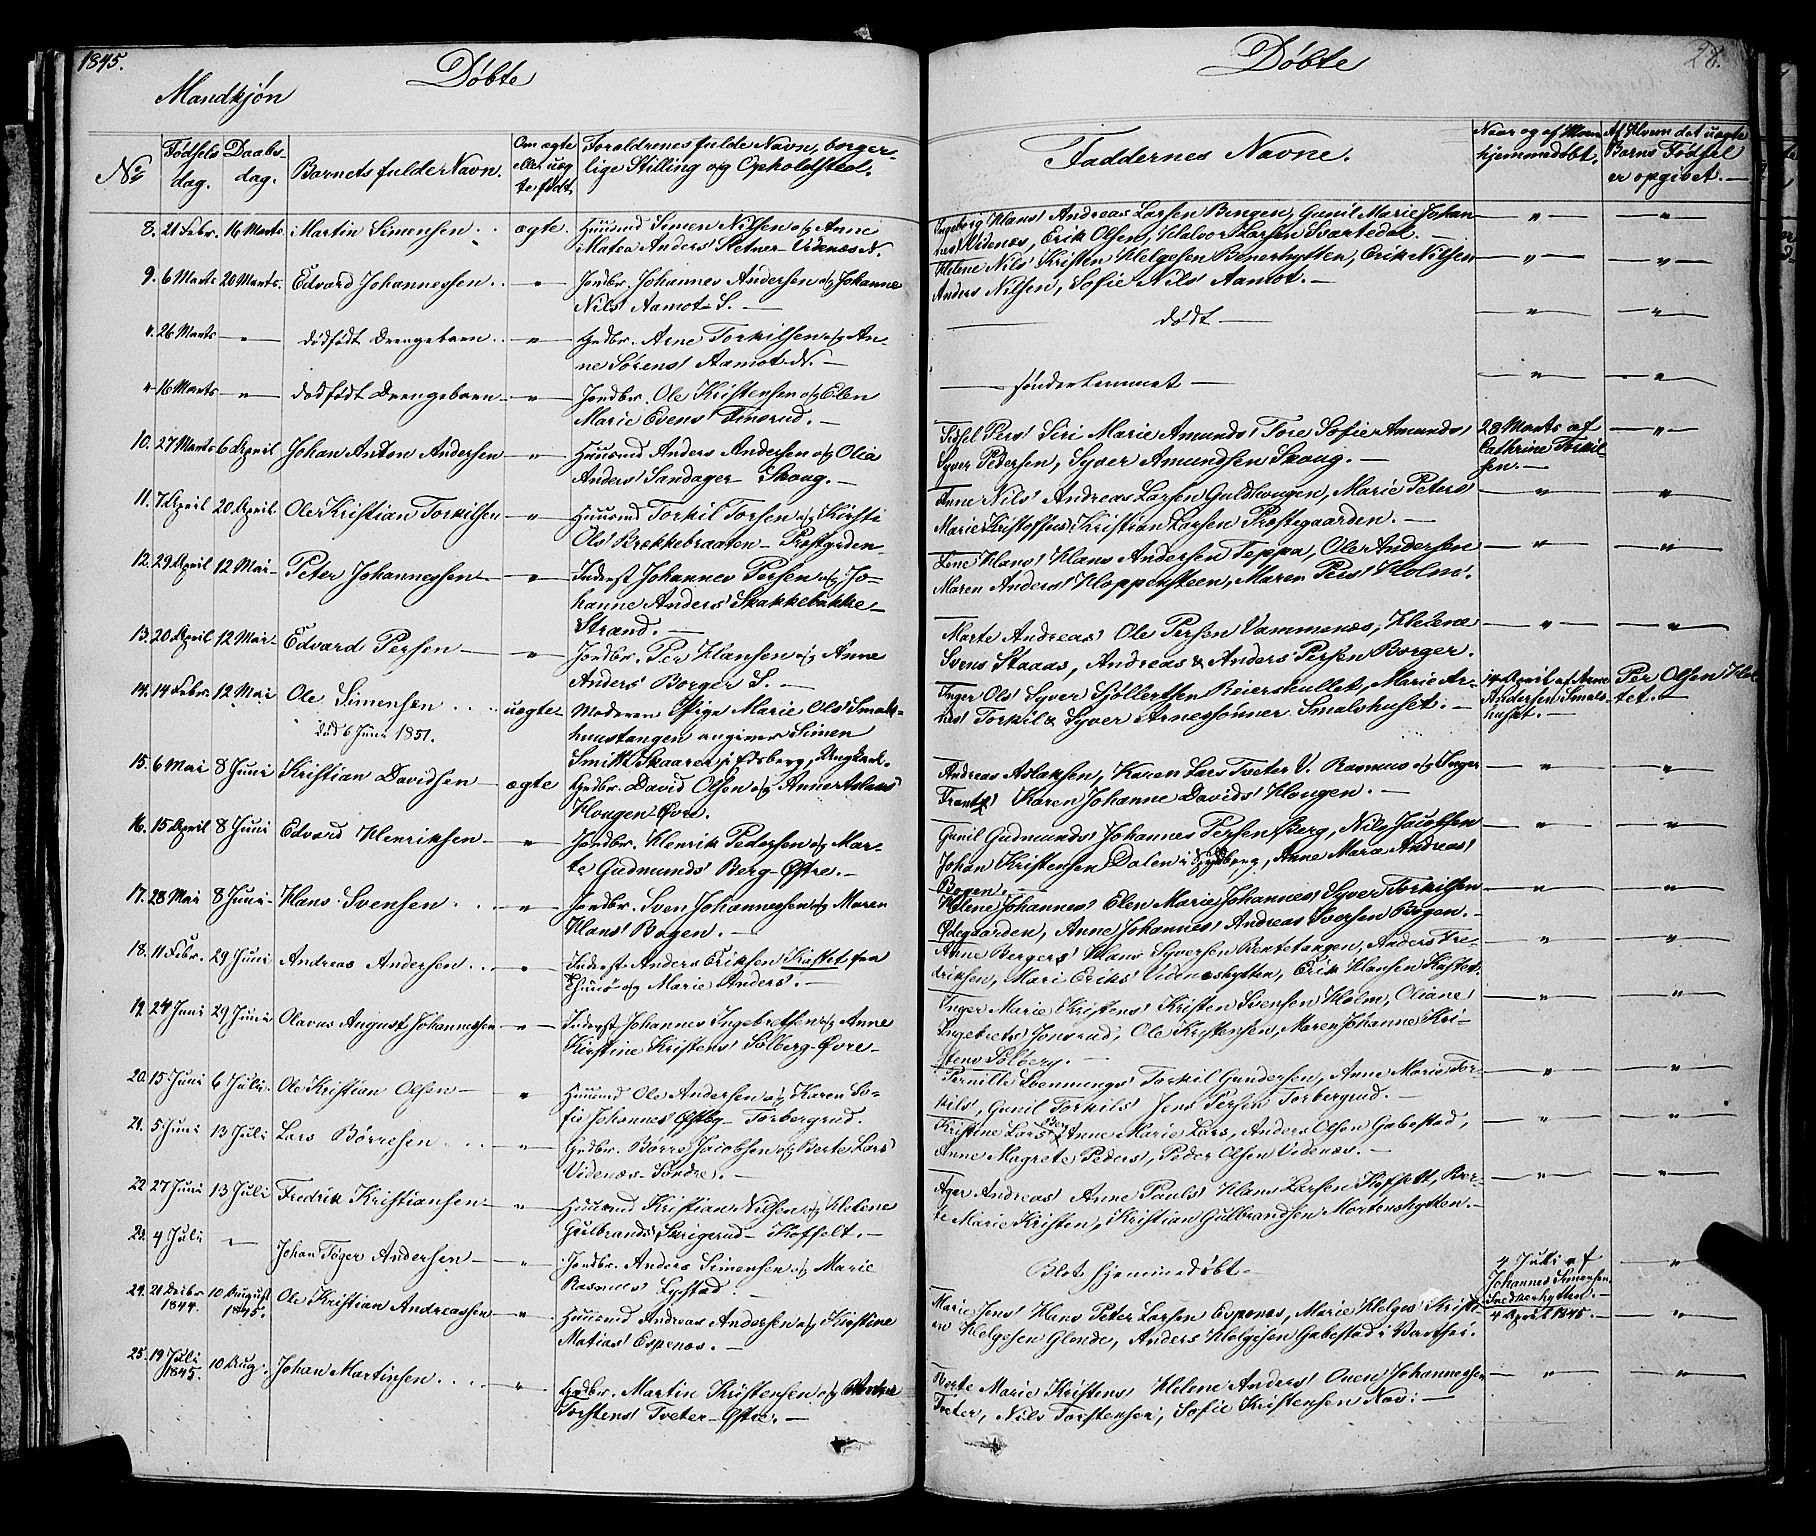 1845.
Døbte
Mandkjøn
No
Fødsels dag.
Daabs- dag.
Barnets fulde Navn.
Om ægte eller uæg te født.
Forældrenes fulde Navn, borger- lige Stilling og Opholdsted.
8. 21 Febr. 16 Marts. Martin Simensen .. ægte. Huusmd Simen Nilsen og Anne
Matea Anders' Sletner Videnæs N.
9. 6 Marts 20 Marts. Edvard Johannessen .. " Jordbr. Johannes Andersen og Johanne
Nils' Aamot S. —
" 26 Marts — " — dødfødt Drengebarn .. " Gndbr. Arne Torkilsen og An-
ne Sørens' Aamot N. —
" 16 Marts — " — dødfødt Drengebarn — " Jordbr. Ole Kristensen og Elen
Marie Evens' Finsrud. —
10. 27 Marts 6 April Johan Anton Andersen " Huusmd Anders Andersen og Olia
Anders' Sandager Skoug. —
11. 7 April 20 April. Ole Kristian Torkilsen " Huusmd Torkil Torsen og Kirsti
Ols' Brekkebraaten - Præstgrden
12. 29 April 12 Mai — Peter Johannessen — " Inderst Johannes Persen og Jo-
hanne Anders' Skakkebakke
Strand. —
13. 20 April 12 Mai — Edvard Persen — " Jordbr. Per Hansen og Anne
Anders' Borger S. —
14. 14 Febr. 12 Mai Ole Simensen .... uægte Moderen Pige Marie Ols' Smak-
Død 6 Juni 1851. huustangen angiver Simen
Smitt Skaaren i Edsberg, Ungkarl.
15. 6 Mai 8 Juni Kristian Davidsen — ægte Gndbr. David Olsen og Anne Aslaks'
Hougen Øvre.
16. 15 April 8 Juni Edvard Henriksen — " Jordbr. Henrik Pedersen og Mar-
te Gudmunds' Berg Østre. —
17. 28 Mai 8 Juni — Hans Svensen ... " Jordbr. Sven Johannessen og Maren
Hans' Bogen. —
18. 11 Febr. 29 Juni Andreas Andersen ... " Inderst Anders Eriksen Kastet fra
og Marie Anders'. —
19. 24 Juni 29 Juni Olavus August Johannessen " Inderst Johannes Ingebretsen og Anne
Kirstine Kristens' Solberg Øvre —
20. 15 Juni 6 Juli. Ole Kristian Olsen — " Huusmd Ole Andersen og Karen So-
fie Johannes' Østby Torbergrud.
21. 5 Juni 13 Juli Lars Børresen ... " Gndbr. Børre Jacobsen og Berte Lars'
Videnæs Søndre. —
22 27 Juni 13 Juli Fredrik Kristiansen — " Huusmd Kristian Nilsen og Helene
Gulbrands' Kofselt. —
23. 4 Juli — Johan Andersen — " Jordbr. Anders Simensen og Marie
Rasmus' Lystad. —
24. 21 Decbr 1844. 10 August 1845. Ole Kristian Andreassen " Huusmd Andreas Andersen og Kirstine
Matias' Espenæs. —
25. 19 Juli 1845. 10 Aug: Johan Martinsen .... " Gndbr. Martin Kristensen og
Torstens' Tveter Østre. —
Døbte
28.
Faddernes Navne.
Naar og af Hvem hjemmedøbt.
Af Hvem det uægte Barns Fødsel er opgivet. —
Ingebrig Hans' Andreas Larsen Bingen, Gunil Marie Johan
nes' Videnæs, Erik Olsen, Halvor Larsen Svartedal. —
Helene Nils' Kristen Helgesen Bønerhytten, Erik Nilsen
Anders Nilsen, Sofie Nils' Aamot. —
— dødt —
— sønderlemmet —
Sidsel Pers' Siri Marie Amunds' Tore Sofie Amunds'
Syver Pedersen, Syver Amundsen Skoug. —
28 Marts af Cathrine Torkil- sen. —
Anne Nils' Andreas Larsen Guldhougen, Marie Peters'
Marie Kristoffers' Kristian Larsen Præstegaarden. —
Lene Hans' Hans Andersen Teppa, Ole Andersen
Maren Anders' Kloppersteen, Maren Pers' Holm.
Marte Andreas' Ole Persen Vammenæs, Helena
Svens Staaas, Andreas & Anders Persen Borger.
Inger Ols' Syver Søllertsen Reiershullet, Marie Ar-
nes' Torkil & Syver Arnessønner Smalshuset. —
14 April af Arne Andersen Smals- huset. —
Per Olsen Hol tet. —
Andreas Aslaksen, Karen Lars' Tveter V. Rasmus og Inger
Frants' Karen Johanne Davids' Hougen. —
Gunil Gudmunds' Johannes Persen Berg, Nils Jacobsen
Johan Kristensen Dalen i Spydberg, Anne Maria Andreas'
Bogen. —
Helene Johannes' Elen Marie Johannes' Syver Torkilsen
Ødegaarden, Anne Johannes' Andreas Svensen Bogen. —
Anne Bergers' Hans Syversen Rentetangen, Anders Fre-
driksen, Mari Eriks' Videnæshytten, Erik Hansen Kastet.
Inger Marie Kristens' Kristen Svensen Holm, Oliane
Ingebrets' Jonsrud, Ole Kristensen, Maren Johanne Kri-
stens' Solberg. —
Pernille Svenninges' Torkil Gundersen, Anne Marie Tor-
kils', Gunil Torkils' Jens Persen Torbergrud. —
Kristine Lars' Anne Marie Lars', Anders Olsen Gabestad,
Anne Magrete Peders', Peder Olsen Videnæs. —
Andreas' Anne Pauls' Hans Larsen Kofselt, Ber-
te Marie Kristen, Kristian Gulbrandsen Mortenshytten. —
Blot hjemmedøbt. —
4 Juli af Johannes Simensen Snedkerhytten. —
Marie Jens' Hans Peter Larsen Espenæs, Marie Helges' Kristi-
an Helgesen Glende, Anders Helgesen Gabestad i
4 April 1845. —
Berte Marie Kristens' Helene Anders' Johannessen
Tveter, Nils Torstensen, Sofie Kristensen Nav: —